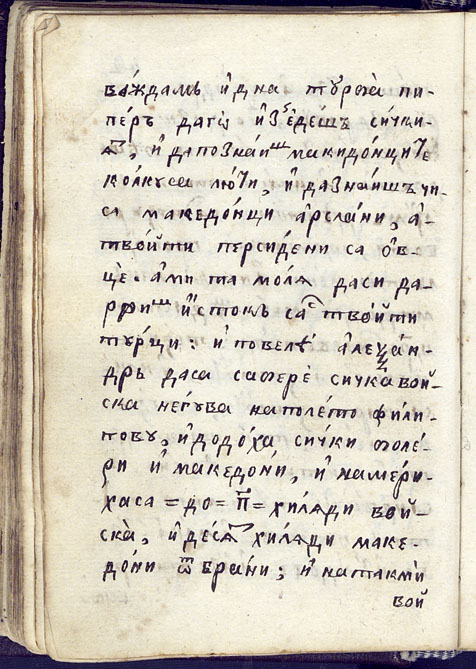 ва́ждамь и҆ дна тꙋрба̀ пи-
пе́рь даго и҆зⷷе́дешъ си́чки-
ѧ҆̑, и҆ да позна́иⷲ҇ макидо́нците
ко́лкꙋса лю́ти, и҆ да зна́ишъ чи-
са македо́нци а҆рсла́ни, а҆-
тво́йти персиде́ни са о҆в-
це̏. а҆ми та молѧ даси да-
рѝⷲ҇ и҆сто́къ саⷭ҇ тво́йти
тꙋ́рци: и҆ повеле̑ а҆леѯа́н-
дрь даса саберѐ сичка вой-
ска негꙋва наполе́то фили-
повꙋ, и҆ додо́ха си́чки боле́-
ри и҆ македо́ни, и҆ намери́-
хаса = до = п҃ = хилѧди вой-
ска̀, и҆ де́сѧⷮ хилѧди маке-
до́ни ѿбра́ни; и҆ натакми̏
вой